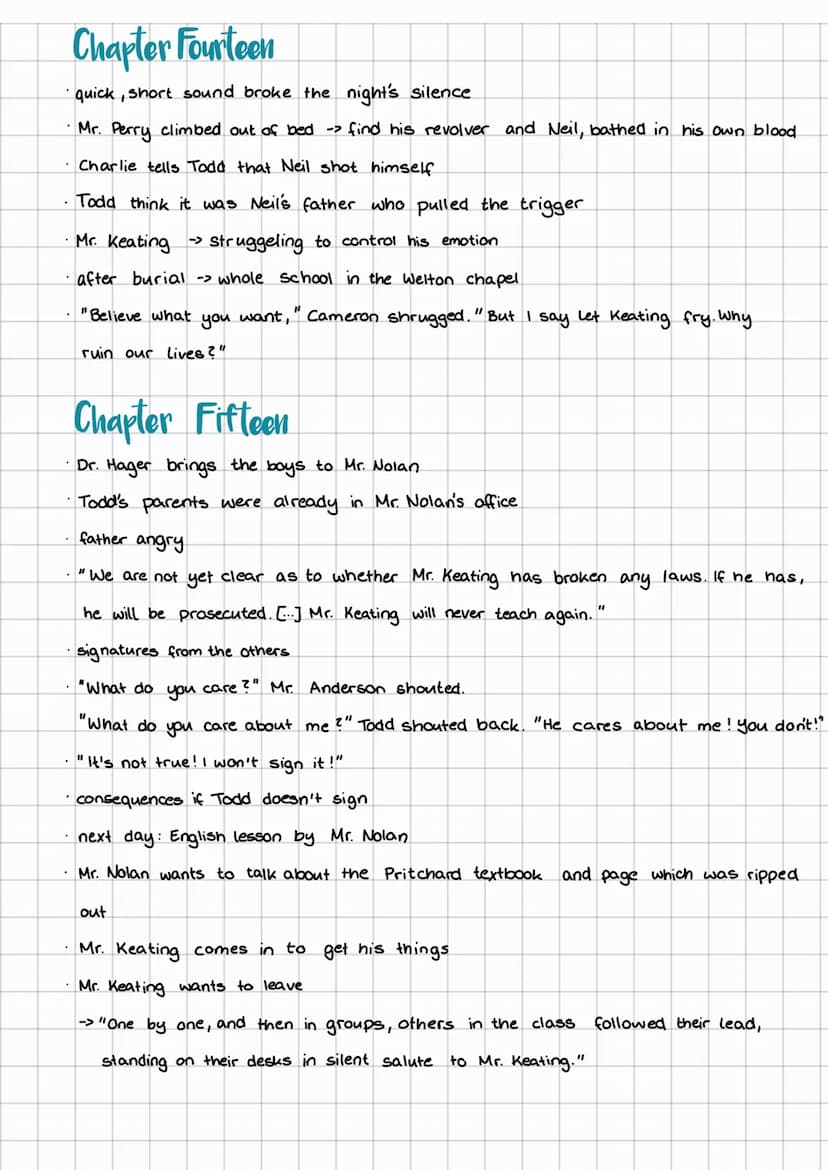 Chapter Fourteen
· quick, short sound broke the night's silence
· Mr. Perry climbed out of bed -> find his revolver and Neil, bathed in his own blood
· Charlie tells Todd that Neil shot himself
· Todd think it was Neil's father who pulled the trigger
· Mr. Keating -> struggeling to control his emotion
· after burial -> whole school in the Welton chapel
· "Believe what you want," Cameron shrugged. "But I say let Keating fry. Why
ruin our lives?"
Chapter Fifteen
· Dr. Hager brings the boys to Mr. Nolan
· Todd's parents were already in Mr. Nolan's office
· father angry
· "We are not yet clear as to whether Mr. Keating has broken any laws. If he has,
he will be prosecuted. [...] Mr. Keating will never teach again."
· signatures from the others
· "What do you care?" Mr. Anderson shouted.
"What do you care about me?" Todd shouted back. "He cares about me! You don't!"
· "It's not true! I won't sign it!"
· consequences if Todd doesn't sign
· next day: English lesson by Mr. Nolan
· Mr. Nolan wants to talk about the Pritchard textbook and page which was ripped
out
· Mr. Keating comes in to get his things
· Mr. Keating wants to leave
-> "One by one, and then in groups, others in the class followed their lead,
standing on their desks in silent salute to Mr. Keating."